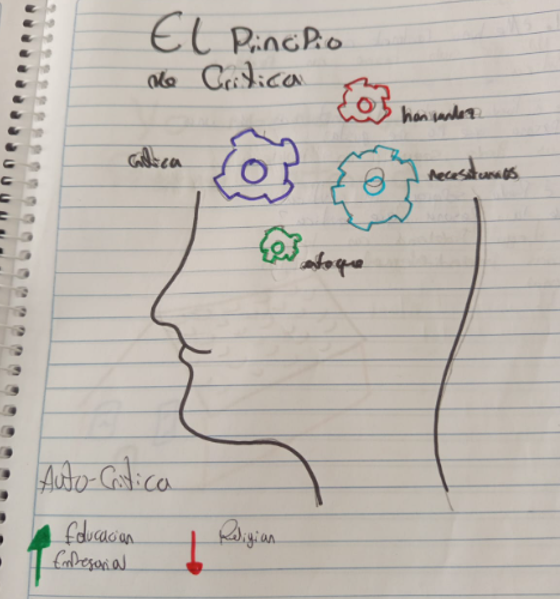 El Principio
de Critica
critica
necesitamos
enfoque
Auto-Critica
Educacion
Empresarial
Religion